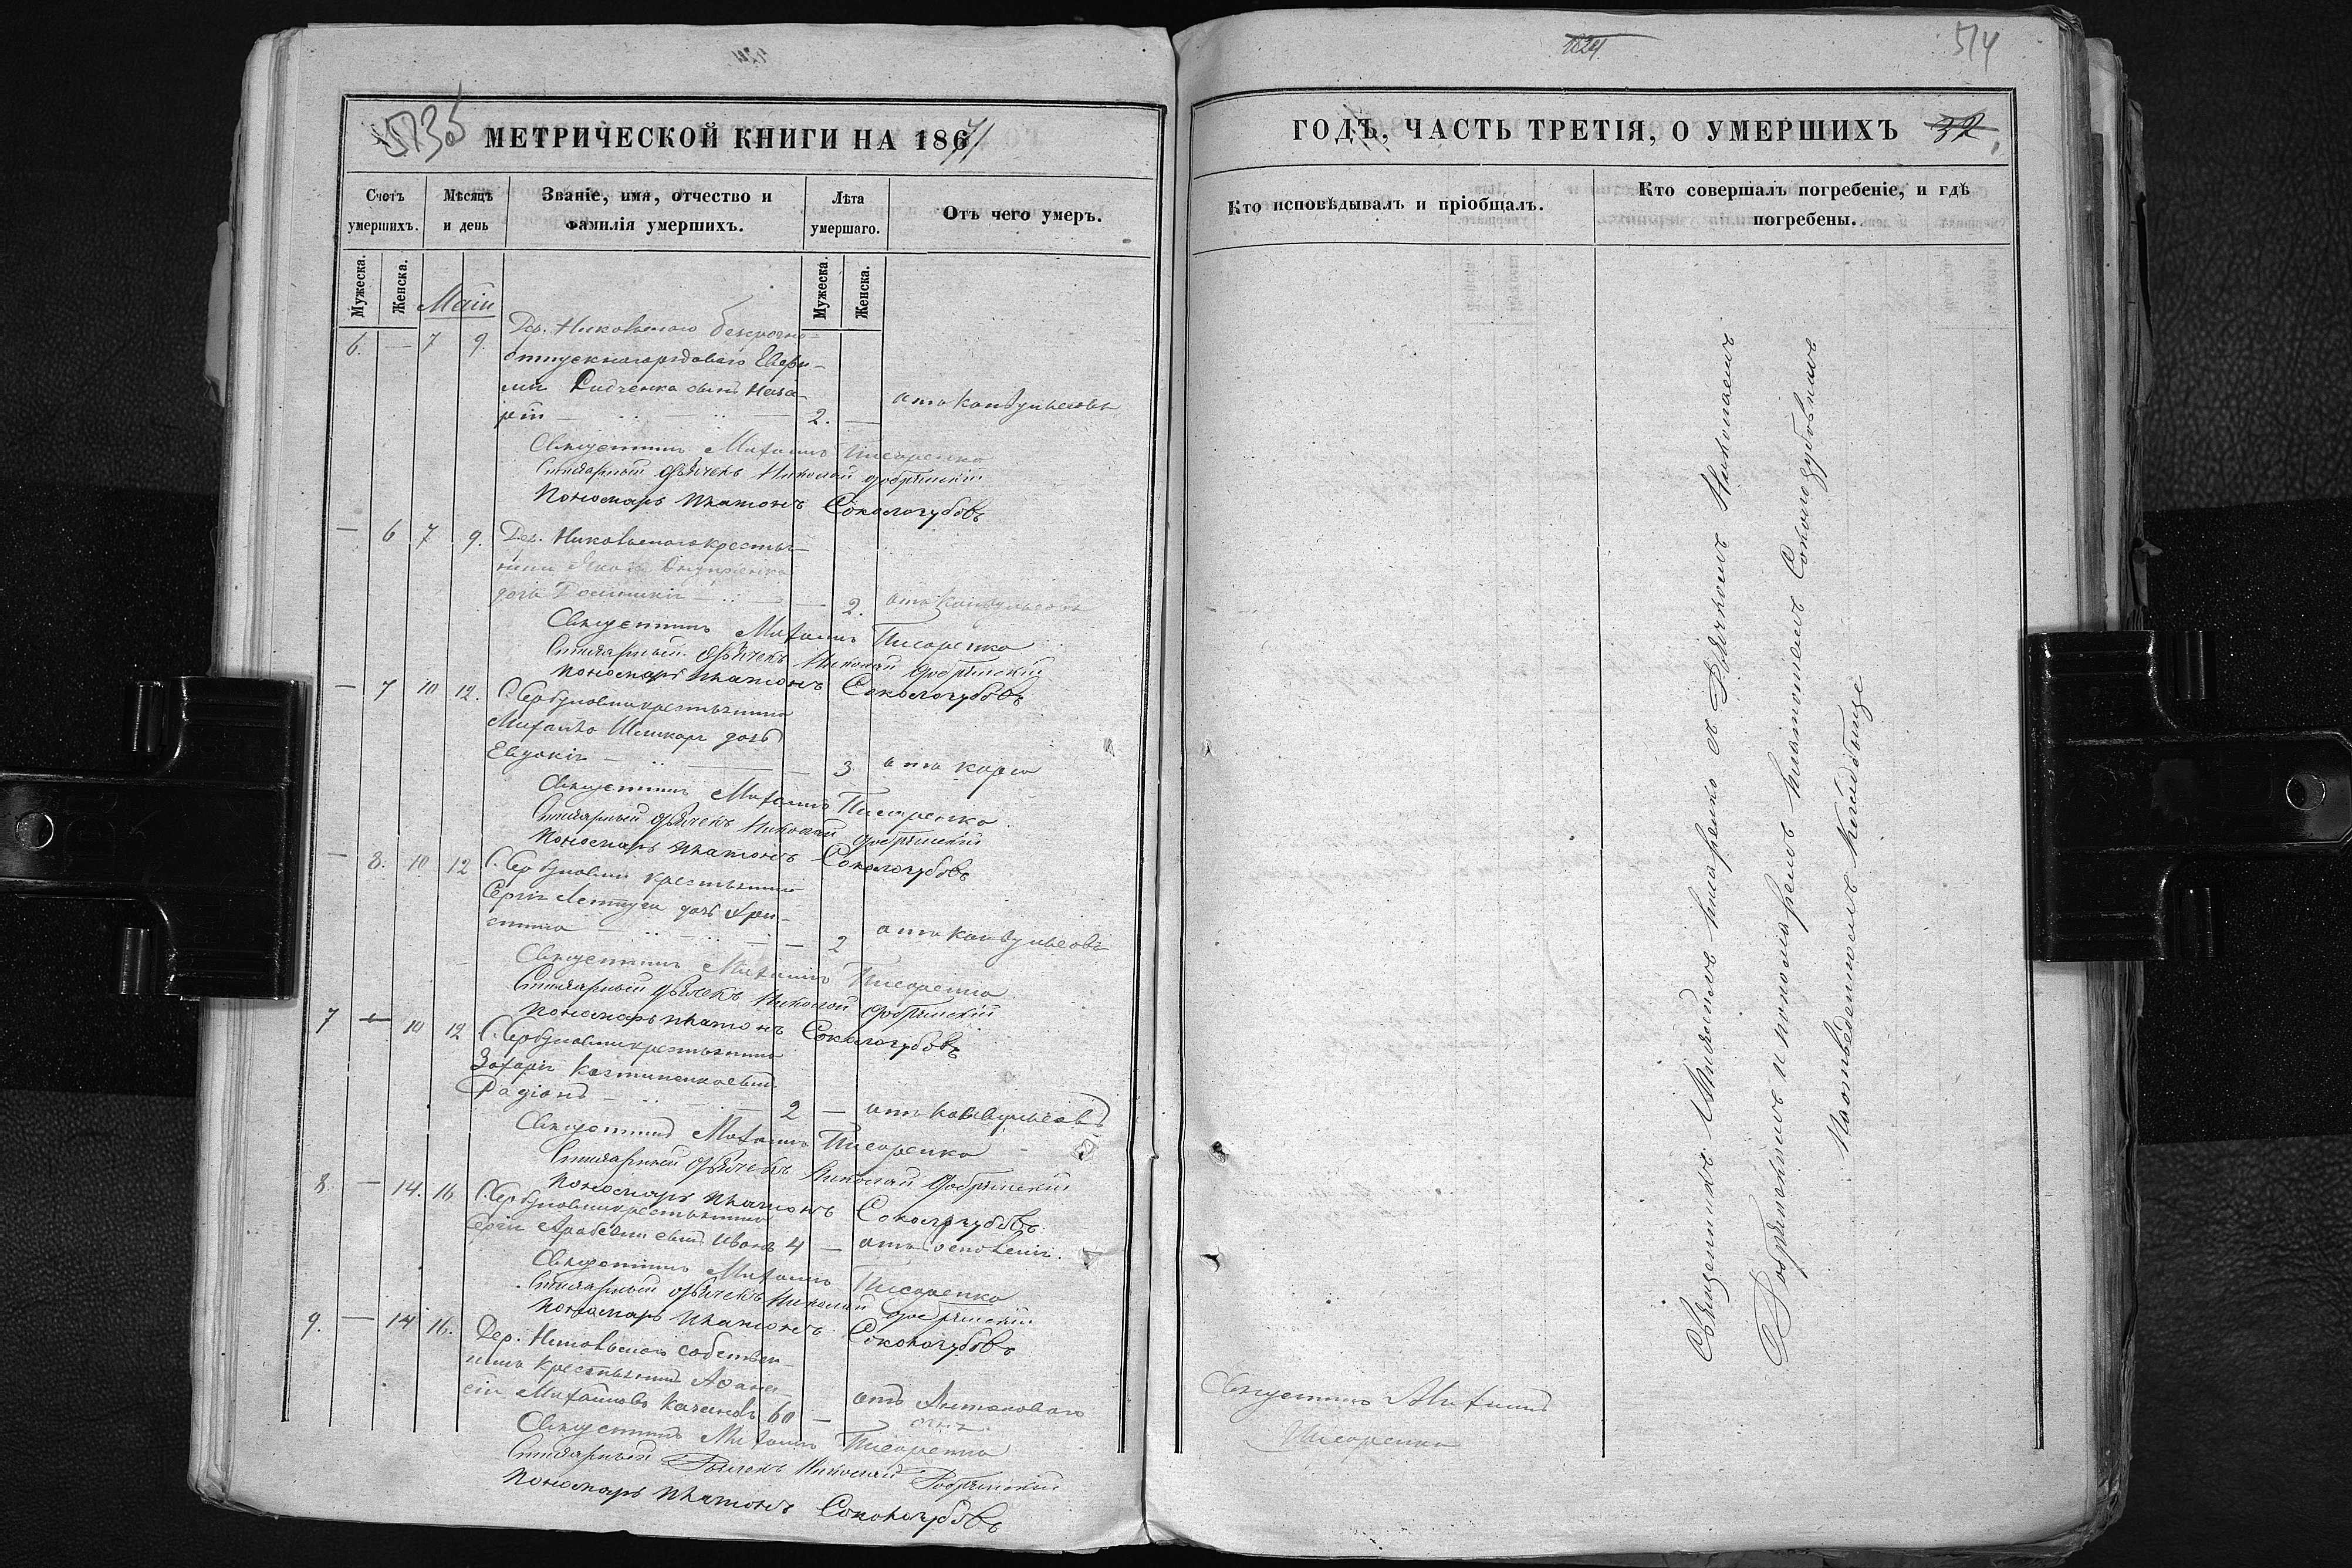 5135
МЕТРИЧЕСКОЙ КНИГИ НА 1871
Счотъ умершихъ.
Мѣсяцъ и день
Званіе, имя, отчество и фамилія умершихъ.
Лѣта умершаго.
Отъ чего умеръ.
Мужеска.
Женска.
Мужеска.
Женска.
Маій
6. — 7 9. Дер. Николаевского безсрочно-
отпускнаго рядоваго Евфи-
мія Дидченка сынъ Наза-
рій — 2. — отъ конвульсовъ
Священникъ Михаилъ Писаренко
Стихарный дьячекъ Николай Добрянскій
Пономарь Платонъ Сокологубовъ
— 6 7 9. Дер. Николаевского крестья-
нина Якова
дочь — 2. отъ конвульсовъ
Священникъ Михаилъ Писаренко
Стихарный дьячекъ Николай Добрянскій
Пономарь Платонъ Сокологубовъ
— 7 10 12. С. Сербуловки крестьянина
Михаила дочь
Евдокія — 3 отъ кора
Священникъ Михаилъ Писаренко
Стихарный дьячекъ Николай Добрянскій
Пономарь Платонъ Сокологубовъ
— 8. 10 12 С. Сербуловки крестьянина
Сергія дочь Хри-
стина — 2 отъ конвульсовъ
Священникъ Михаилъ Писаренко
Стихарный дьячекъ Николай Добрянскій
Пономарь Платонъ Сокологубовъ
7 — 10 12 С. Сербуловки крестьянина
Захарія сынъ
Радіонъ — 2 — отъ конвульсовъ
Священникъ Михаилъ Писаренко
Стихарный дьячекъ Николай Добрянскій
Пономарь Платонъ Сокологубовъ
8 — 14. 16 С. Сербуловки крестьянина
Сергія сынъ Иванъ 4 — отъ
Священникъ Михаилъ Писаренко
Стихарный дьячекъ Николай Добрянскій
Пономарь Платонъ Сокологубовъ
9. — 14 16. Дер. Николаевского собствен-
никъ крестьянинъ Афана-
сій Михайловъ 60 — отъ Антонового
огня
Священникъ Михаилъ Писаренко
Стихарный Дьячекъ Николай Добрянскій
Пономарь Платонъ Сокологубовъ
1824
514
ГОДЪ, ЧАСТЬ ТРЕТІЯ, О УМЕРШИХЪ
32
Кто исповѣдывалъ и пріобщалъ.
Кто совершалъ погребеніе, и гдѣ погребены.
Священникъ Михаилъ Писаренко съ Дьячкомъ Николаемъ
Добрянскимъ и пономаремъ Платономъ Сокологубовымъ
На отведенномъ кладбищѣ
Священникъ Михаилъ
Писаренко